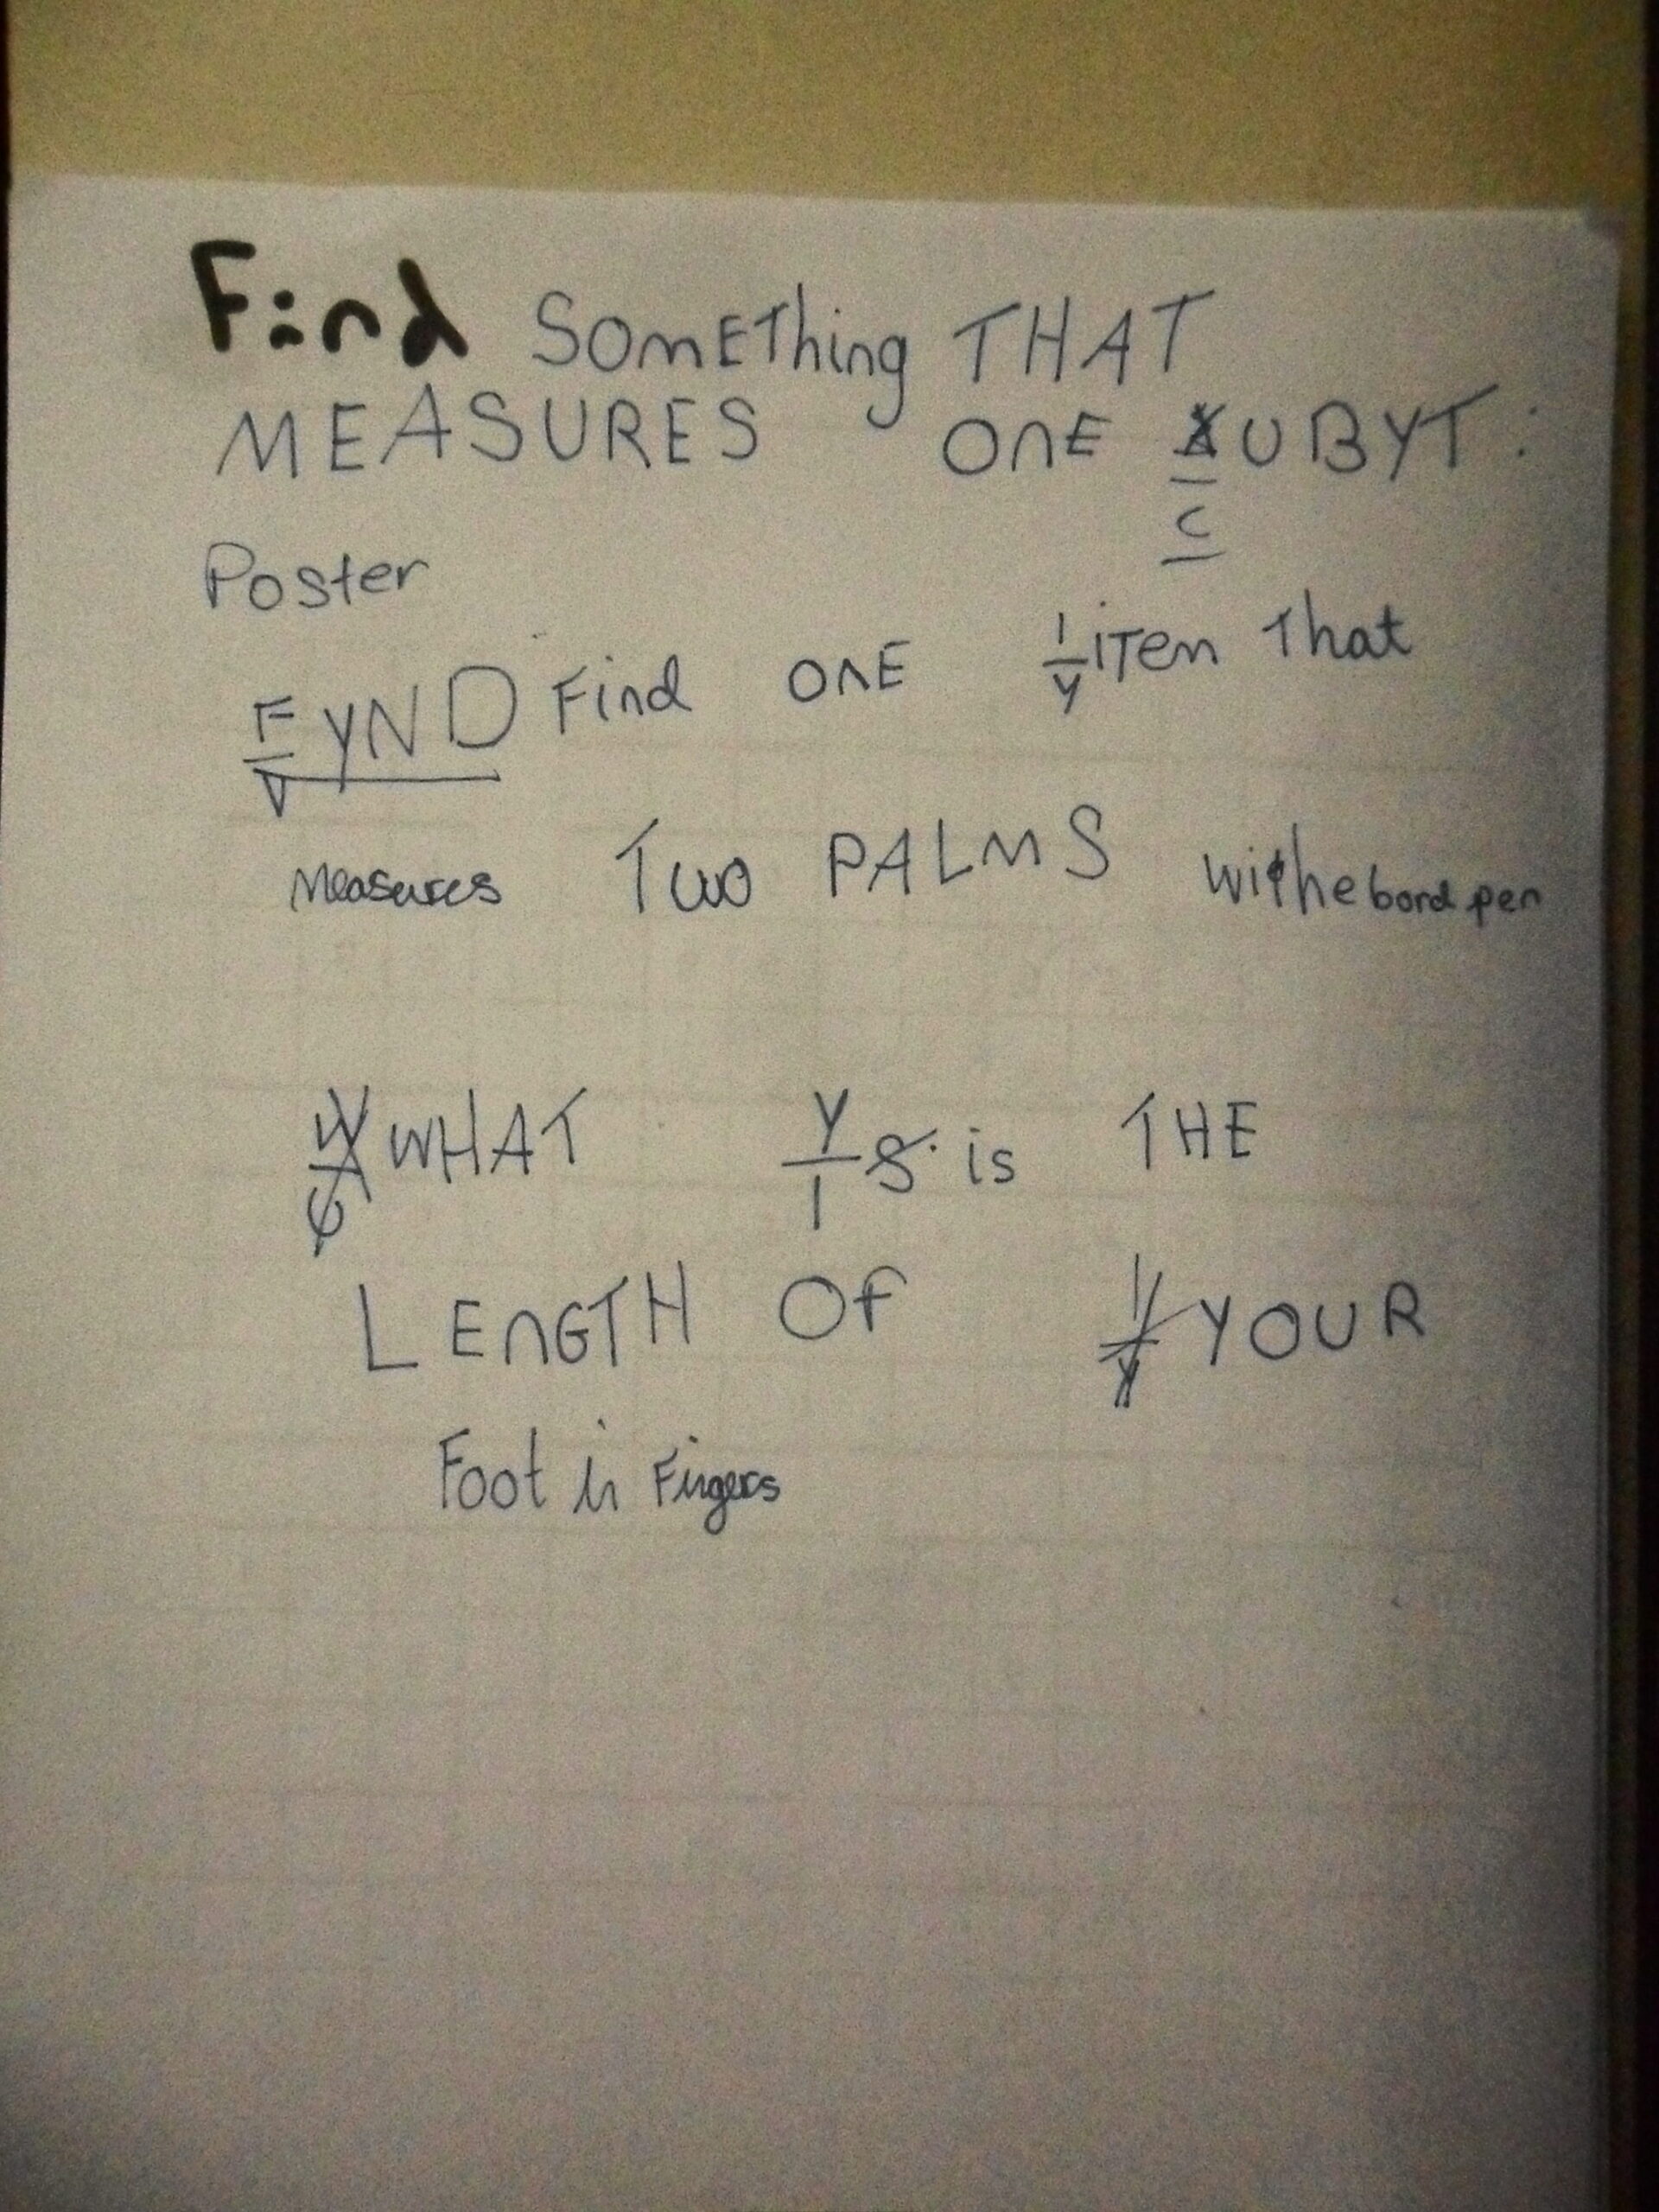 Find SOMETHING THAT
MEASURES ONE CUBYT:
Poster
FYND Find ONE ITEM That
measures TWO PALMS withebord pen
WHAT is THE
LENGTH OF YOUR
Foot in Fingers